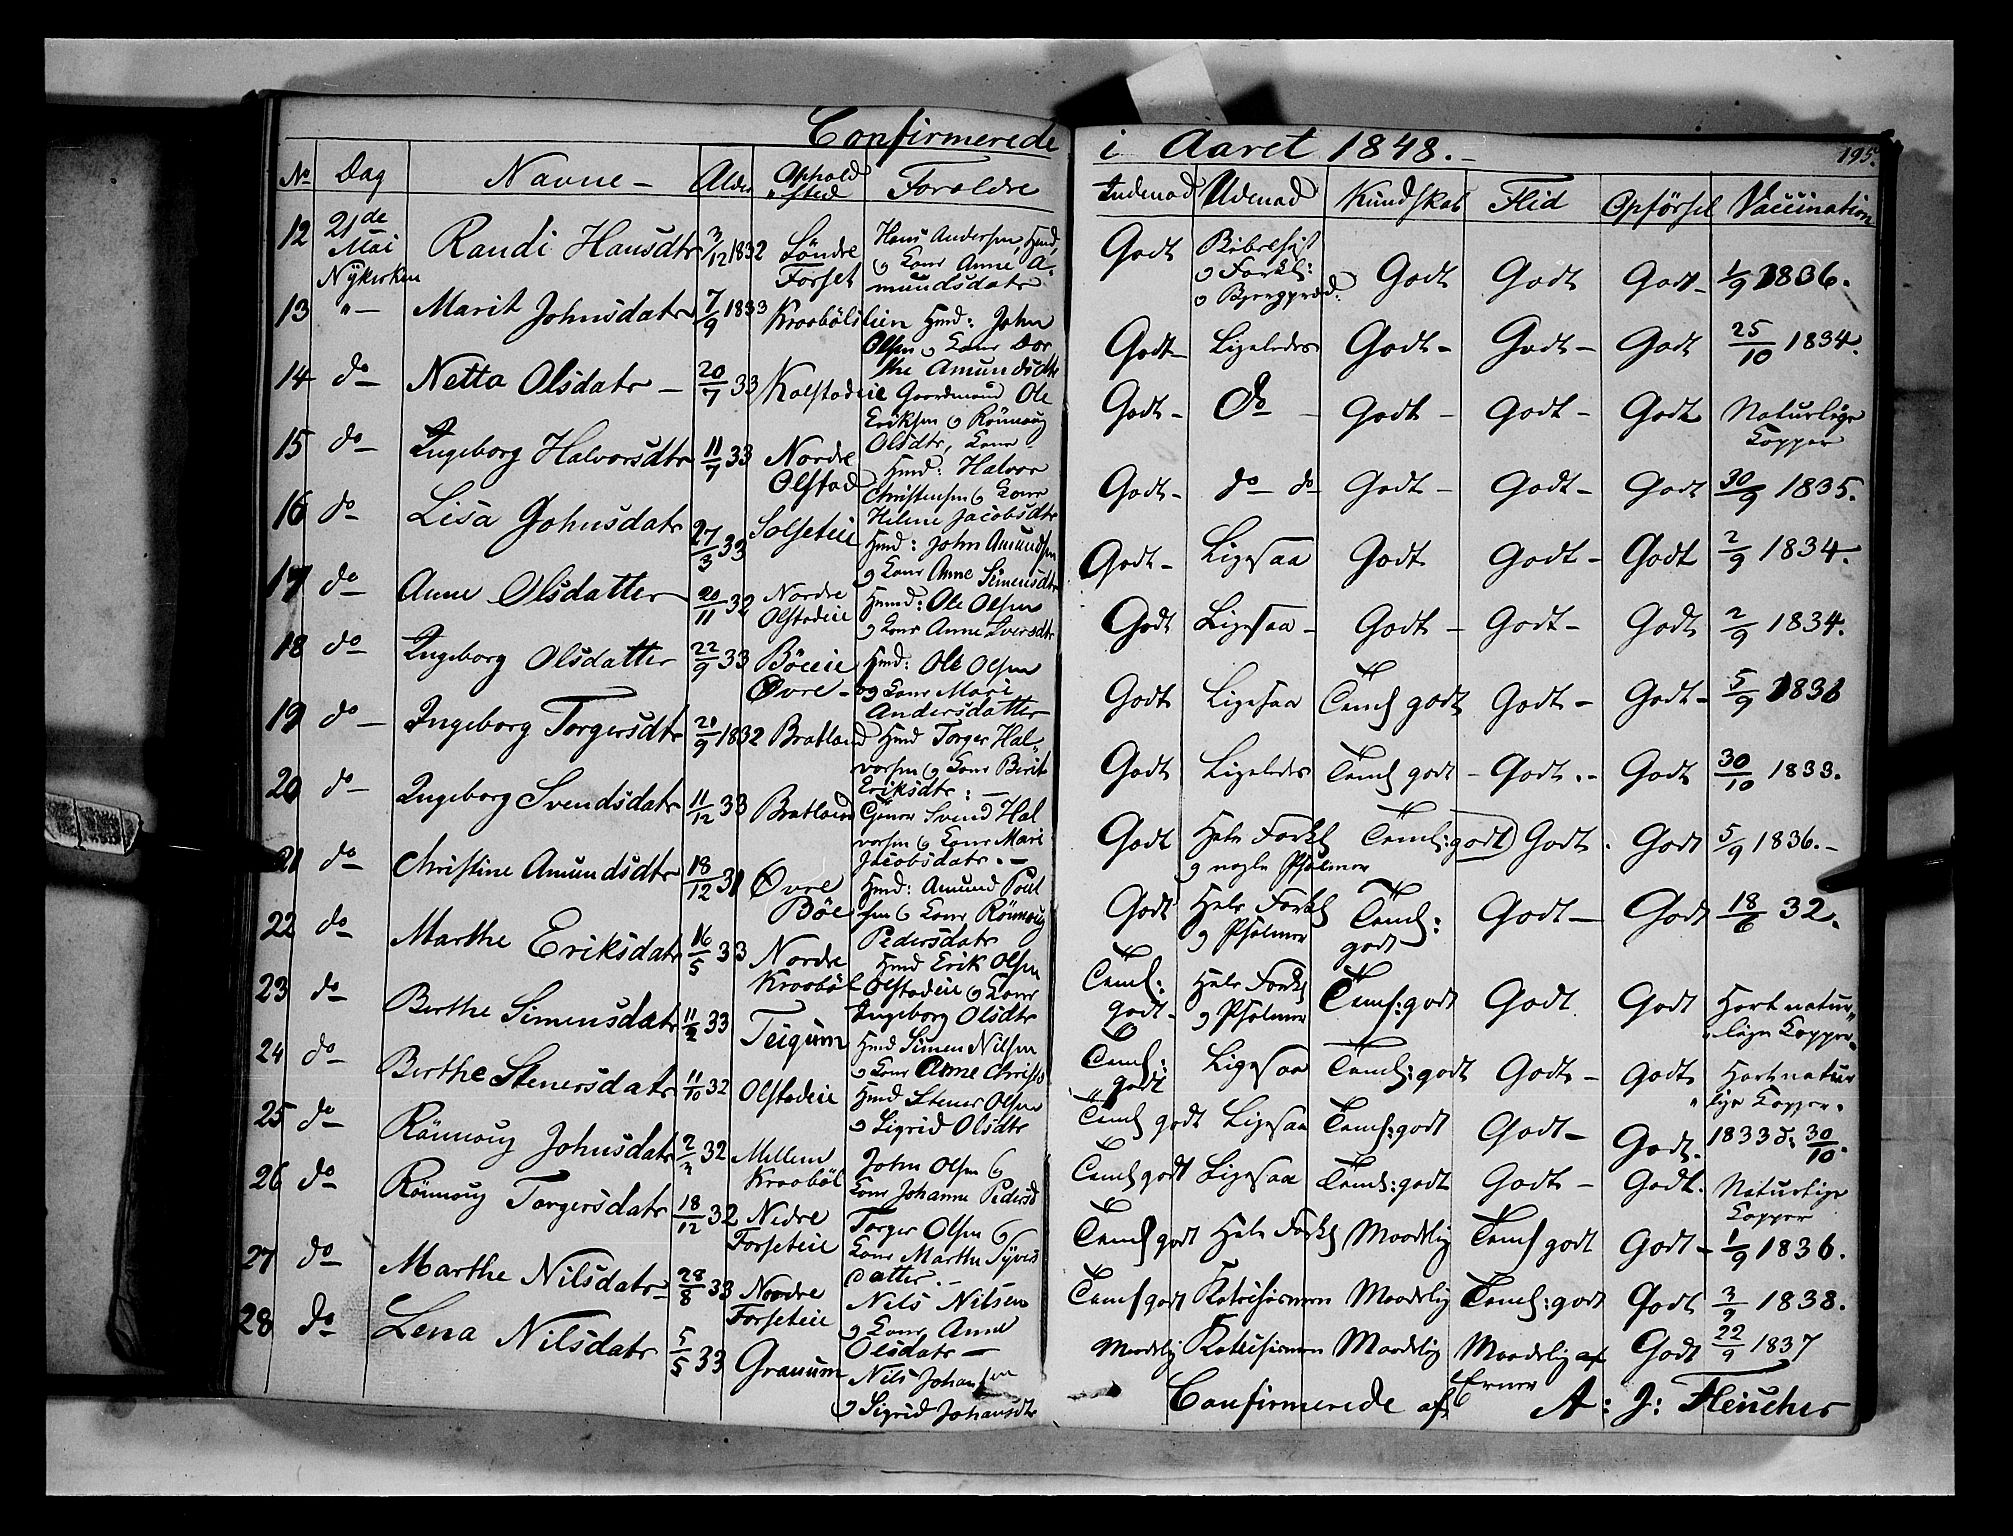 Confirmerede i Aaret 1848.-
195.
No Dag Navne - Alder Ophold sted Forældre Indenad Udenad Kundskab Flid Opførsel Vaccination
12 21de Mai Nykirken Randi Hansdtr 3/12 1832 Søndre Forset Hans Andersen, Hmd, og Kone Anne A-
mundsdatr Godt Bibelhist og Forkl: og Bjergpræd: Godt Godt Godt 1/9 1836.
13 "- Marit Johnsdatr 7/9 1833 Kraabölslien Hmd: John
Olsen og Kone Dor
the Amundsdtr Godt- Ligeledes Godt- Godt- Godt 25/10 1834.
14 do- Netta Olsdatr - 20/7 33 Kalstadeie Gaardmand Ole
Eriksen og Rönnoug
Olsdtr, Kone Godt- do - Godt- Godt- Godt Naturlige
Kopper
15 do- Ingeborg Halvorsdtr 11/7 33 Nordre Olstad Hmd: Halvor
Christensen og Kone
Helene Jacobsdtr Godt- do- do Godt- Godt- Godt 30/9 1835.
16 do- Lisa Johnsdatr 27/3 33 Solseteie Hmd: John Amundsen
og Kone Anne Simensdtr Godt- Ligesaa Godt Godt- Godt 2/9 1834.
17 do- Anne Olsdatter 20/11 32 Nordre Olstadeie Hmd: Ole Olsen
og Kone Anne Iversdtr Godt Ligesaa- Godt- Godt- Godt 2/9 1834.
18 do- Ingeborg Olsdatter 22/9 33 Böeeie Övre- Hmd: Ole Olsen
og Kone Mari
Andersdatter Godt Ligesaa Teml godt Godt- Godt- 5/9 1836
19 do- Ingeborg Torgersdtr 20/9 1832 Bratland Hmd Torger Hal-
vorsen og Kone Berit
Eriksdtr:- Godt Ligeledes Teml godt- Godt.- Godt 30/10 1833.
20 do- Ingeborg Svendsdatr 11/12 33 Bratland Svend Hal
vorsen og Kone Mari
Jacobsdatr.- Godt Hele Forkl
og nogle Psalmer Teml:godt Godt. Godt 5/9 1836.-
21 do- Christine Amundsdtr 18/12 31 Övre Böe Hmd: Amund Poul
sen og Kone Rönnoug
Pedersdatr Godt Hele Forkl
og Psalmer Teml:
godt Godt- Godt 18/6 32.
22 do- Marthe Eriksdatr 16/5 33 Nordre Kraaböl Hmd Erik Olsen
Olstadeie og Kone
Ingeborg Olsdtr Teml:
godt- Hele Forkl
og Psalmer Teml:godt Godt Godt Havt natur-
lige Kopper.
23 do- Berthe Simensdatr 11/2 33 Teigum Hmd Simen Nilsen
og Kone Anne Christ Teml:
godt Ligesaa Teml:godt Godt- Godt Havt natur
lige Kopper.
24 do- Berthe Stenersdatr 11/10 32 Olstadeie Hmd Stener Olsen
og Sigrid Olsdtr Teml godt Ligesaa Teml:godt Godt- Godt. 1833 d. 30/10.
25 do- Rönnoug Johnsdatr 2/3 32 Mellem Kraaböl John Olsen og
Kone Johanne Pedersd Teml godt Ligesaa Teml:godt Godt- Godt. Naturlige
Kopper
26 do- Rönnoug Torgersdatr 18/12 32 Nedre Forseteie Torger Olsen og
Kone Marthe Syvers
datter.- Teml godt Hele Forkl Maadelig Teml godt Godt- 1/9 1836.
27 do- Marthe Nilsdatr- 28/8 33 Nordre Forseteie Nels Nilsen
og Kone Anne
Olsdatr- Teml godt Katechismen Maadelig Teml:godt Godt 3/9 1838.
28 do- Lena Nilsdatr 5/5 33 Granum Nils Johansen
og Sigrid Johansdtr Maadelig Katechismen Maadelig Maadelig af
Evner Godt 22/9 1837
Confirmerede af A: J: Fleischer